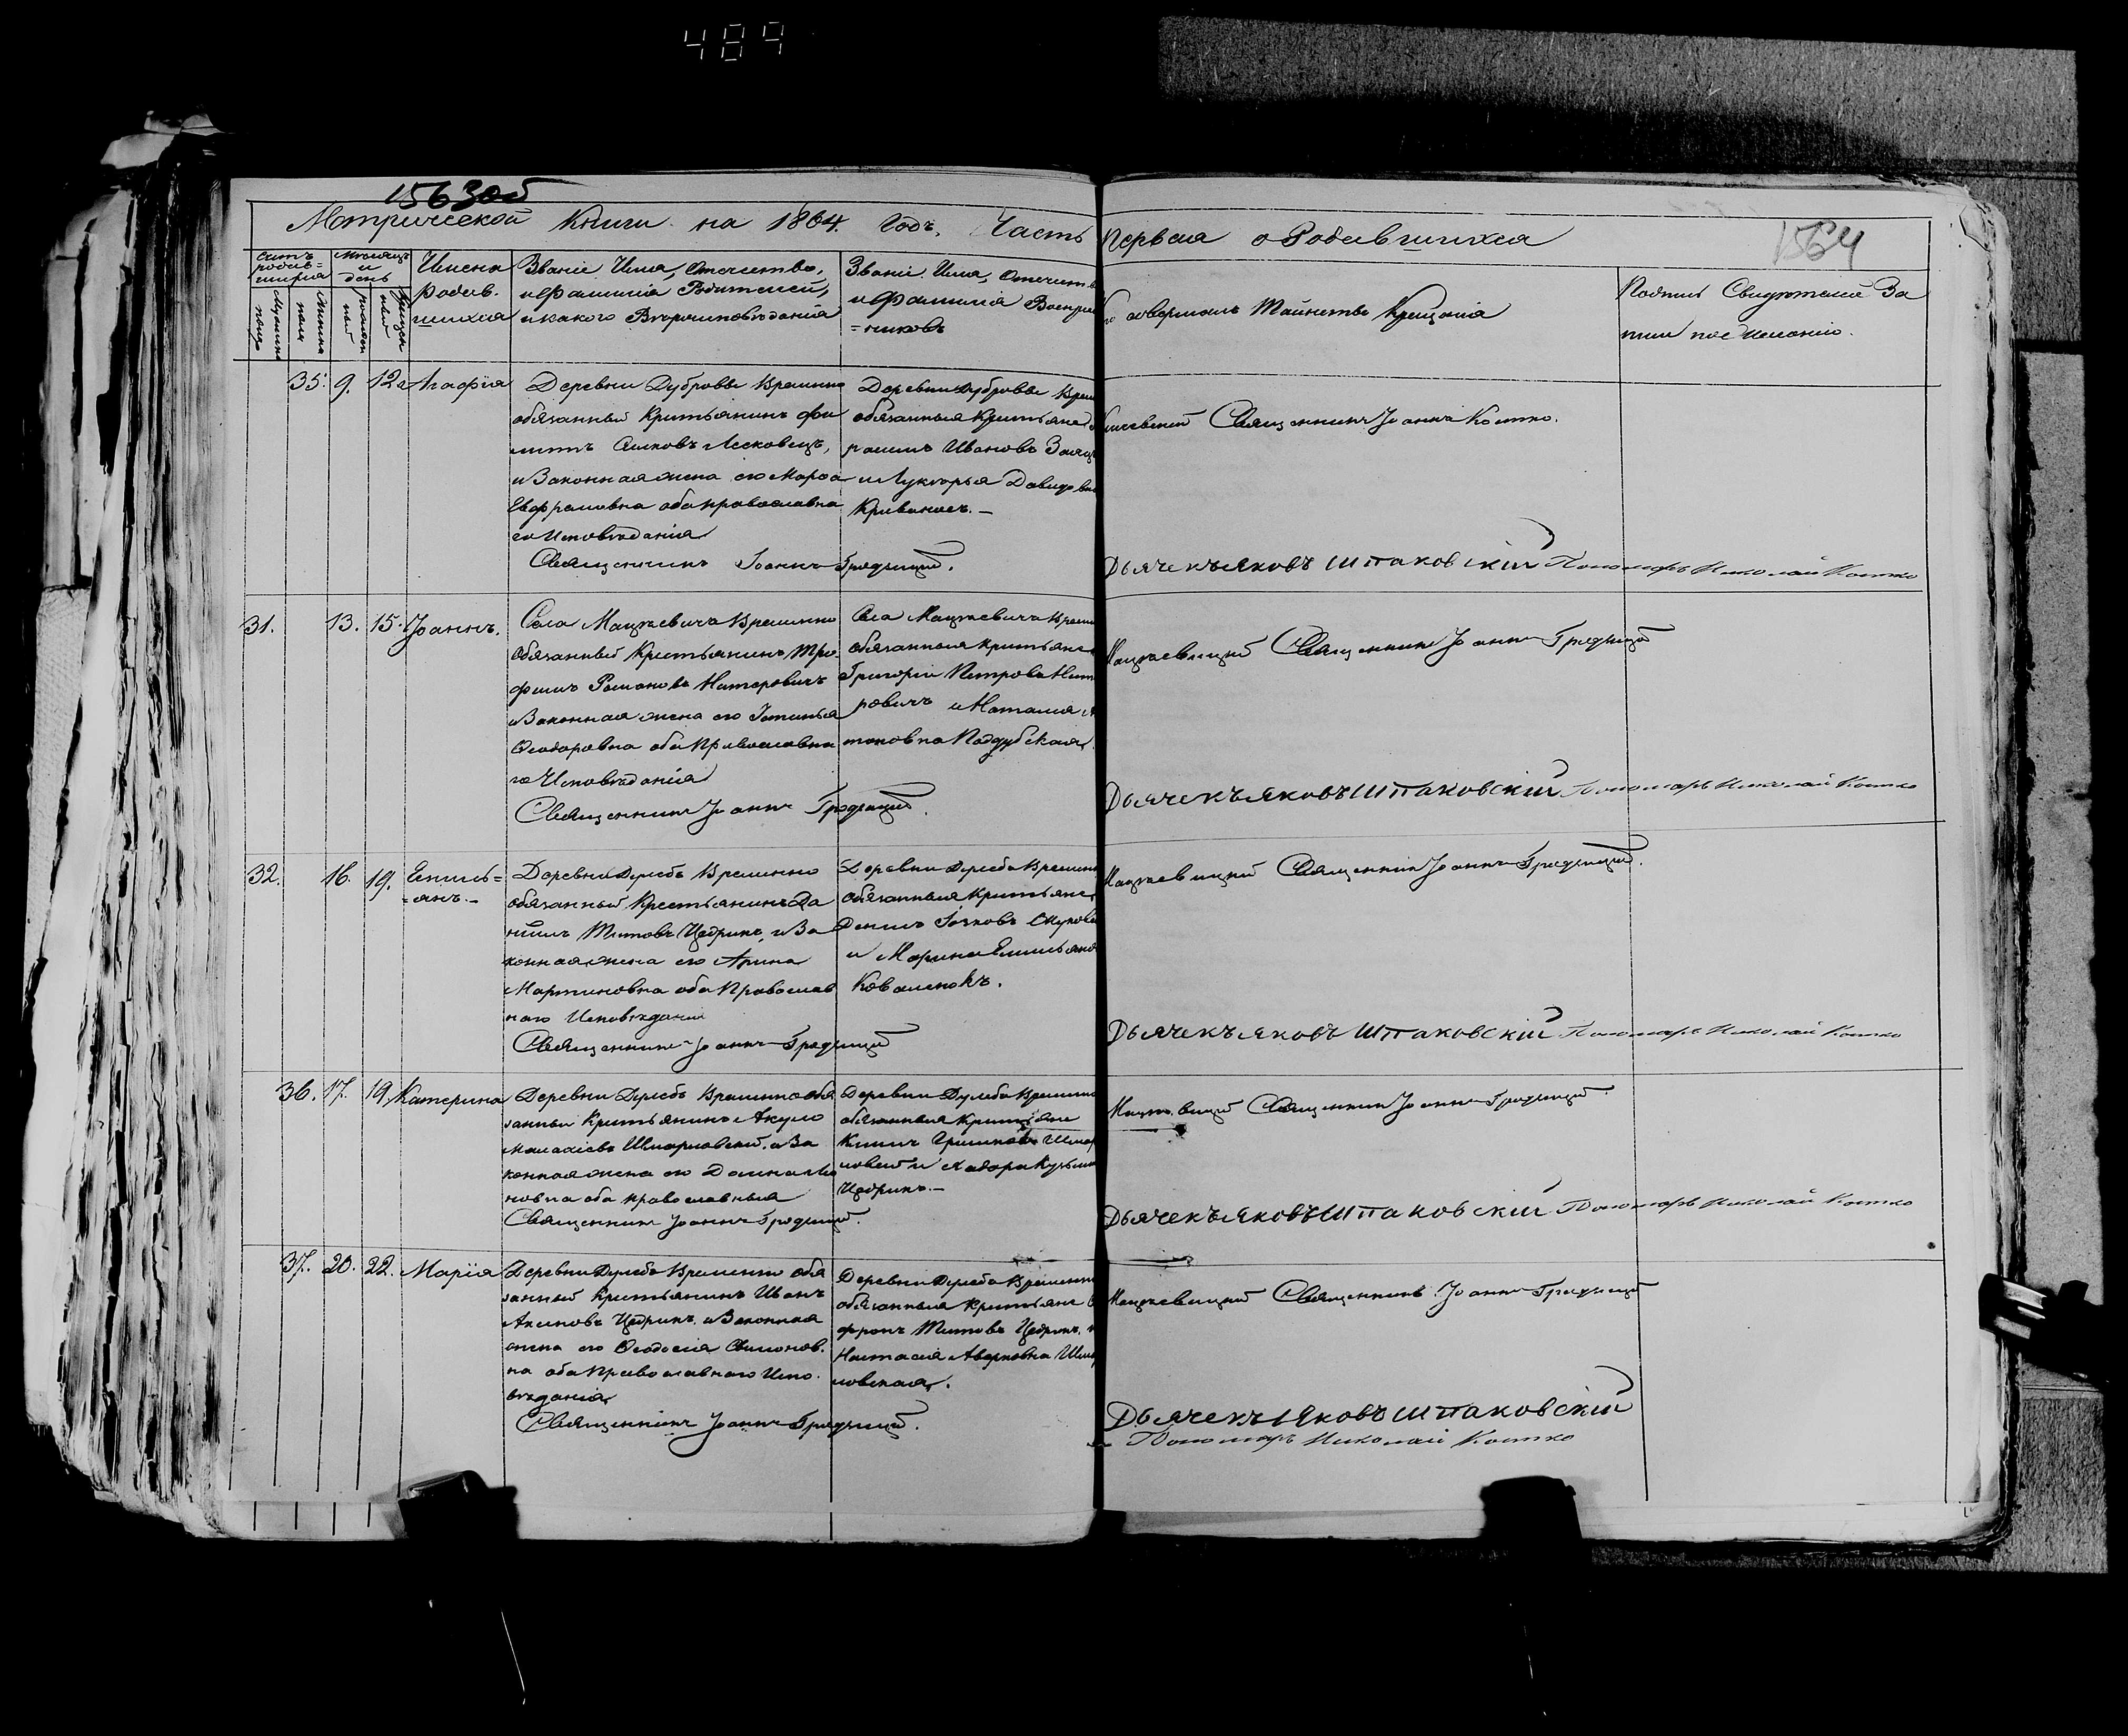 489
1563об
1564
Метрической Книги на 1864. Годъ. Часть Первая о Родившихся
Счетъ родив=шихся
Мужеска пола
Женска пола
Мѣсяцъ и день
рожденія
крещенія
Имена родив.шихся
Званіе Имя, Отечество,
и Фамилія Родителей,
и какого Вѣроисповѣданія
Званіе, Имя, Отечеств
и Фамилія Воспріе
=никовъ
совершалъ Таинство Крещенія
Подпись Свидѣтелей За
писи по Желанію.
35. 9. 12 Агафія
Деревни Дубровы Временно
обязанный Крестьянинъ Фи
липъ Лесковецъ,
и Законная жена его Марѳа
Евфремовна оба православна
го Исповѣданія
Священникъ Іоаннъ Гродзицкій.
Деревни Дубровы Врем
обязанныя Крестьяне
Ивановъ Заяцъ
и Лукерья Давидов
Кривоносъ.
Священникъ Іоаннъ Костко.
Дьячекъ Яковъ Шпаковскій Пономарь Николай Костко
31. 13. 15. Іоаннъ.
Села Мацкевичъ Временно
обязанный Крестьянинъ Тро
фимъ Романовъ Нитеровичъ
и Законная жена его Готинья
Ѳеодоровна оба Православна
го Исповѣданія
Священникъ Іоаннъ Гродзицкій.
Села Мацкевичъ Време
обязанныя крестьяне
Григорій Петровъ Нит
ровичъ и Наталія А
тоновна Поддубская.
Мацкевицкій Священникъ Іоаннъ Гродзицкій
Дьячекъ Яковъ Шпаковскій Пономарь Николай Костко
32. 16. 19. Емиль=
=янъ.
Деревни Дулебъ Временно
обязанный Крестьянинъ Да
ніилъ Титовъ Цедрикъ, и За
конная жена его Арина
Мартиновна оба Православ
наго Исповѣданія
Священникъ Іоаннъ Гродзицкій
Деревни Дулебъ Временн
обязанныя Крестьяне
и Марина Емильяно
Коваленокъ.
Мацкевицкій Священникъ Іоаннъ Гродзицкій.
Дьячекъ Яковъ Шпаковскій Пономарь Николай Костко
36. 17. 19. Катерина
Деревни Дулебъ Временно обя
занный Крестьянинъ Акуло
Малахіевъ Шмарловскій, и За
конная жена его Домна
новна оба православныя
Священникъ Іоаннъ Гродзицкій.
Деревни Дулебъ Временно
обязанныя Крестьяне
Климъ Шмар
ловскій и Ѳадора Кузьми
Цедрикъ.
Мацкевицкій Священникъ Іоаннъ Гродзицкій.
Дьячекъ Яковъ Шпаковскій Пономарь Николай Костко
37. 20. 22. Марія
Деревни Дулебъ Временно обя
занный Крестьянинъ Иванъ
Акимовъ Цедрикъ, и Законная
жена его Ѳеодосія Симонов.
на оба Православнаго Испо.
вѣданія
Священникъ Іоаннъ Гродзицкій.
Деревни Дулебъ Временно
обязанныя Крестьяне
фронъ Титовъ Цедрикъ, и
Настасія Аверковна Шмар
ловская.
Мацкевицкій Священникъ Іоаннъ Гродзицкій
Дьячекъ Яковъ Шпаковскій
Пономарь Николай Костко